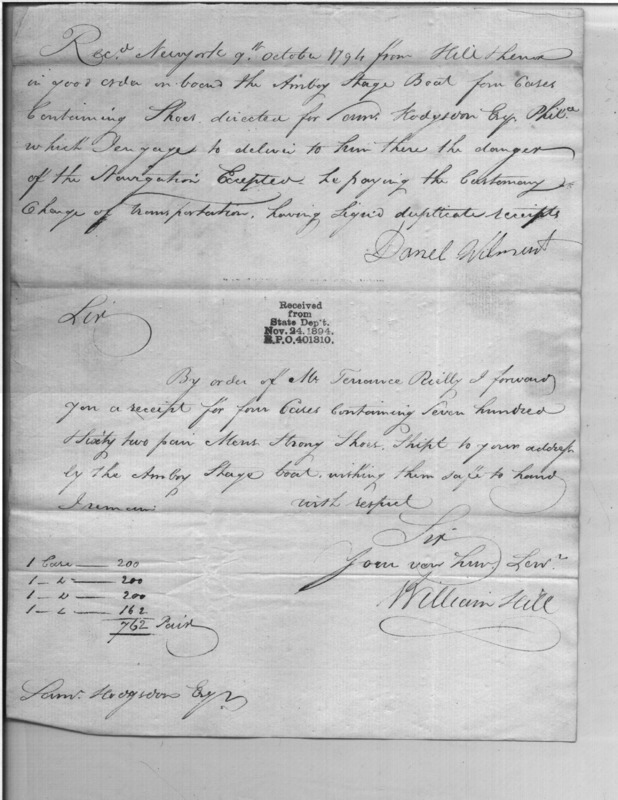 Rec.d Newyork 9th October 1794 from Hill
in good order on board the Amboy Stage Boat four Cases
Containing Shoes directed for Saml. Hodgsdon Esq. Phil.a
which I engage to deliver to him there the danger
of the Navigation Excepted. he paying the Customary
Charge of transportation, having Sign'd duplicate receipts
Daniel
Sir
Received
from
State Dep't.
Nov. 24. 1894.
R.P.O. 401810.
By order of Mr Terrance Reilly I forward
you a receipt for four Cases Containing Seven hundred
& Sixty two pair Mens Strong Shoes. Shipt to your address
by the Amboy Stage boat. wishing them safe to hand
I remain with respect
Sir
Your very hum. Serv.t
William Hill
1 Case — 200
1 — " — 200
1 — " — 200
1 — " — 162
762 Pair
Saml. Hodgsdon Esqr.